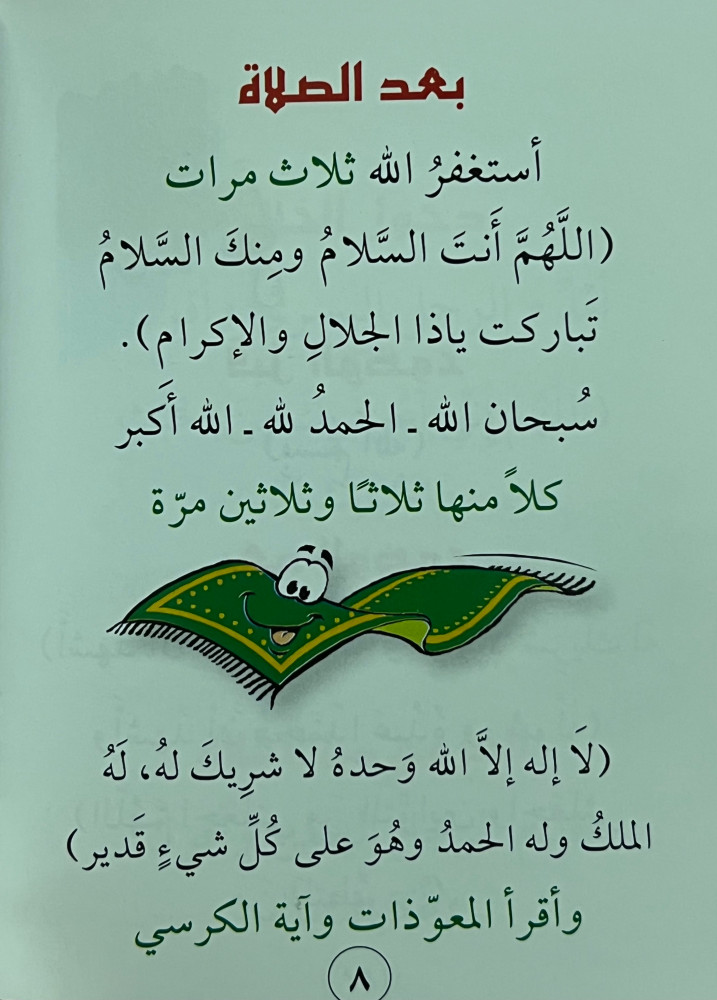 بعد الصلاة
أستغفرُ الله ثلاث مرات
(اللَّهُمَّ أَنتَ السَّلامُ ومِنكَ السَّلامُ
تَباركت ياذا الجلالِ والإكرام).
سُبحان الله ـ الحمدُ لله ـ الله أَكبر
كلاً منها ثلاثًا وثلاثين مرّة
(لَا إله إلاَّ الله وَحدهُ لا شرِيكَ لهُ، لَهُ
الملكُ وله الحمدُ وهُوَ على كُلِّ شيءٍ قَدير)
وأقرأ المعوّذات وآية الكرسي
٨